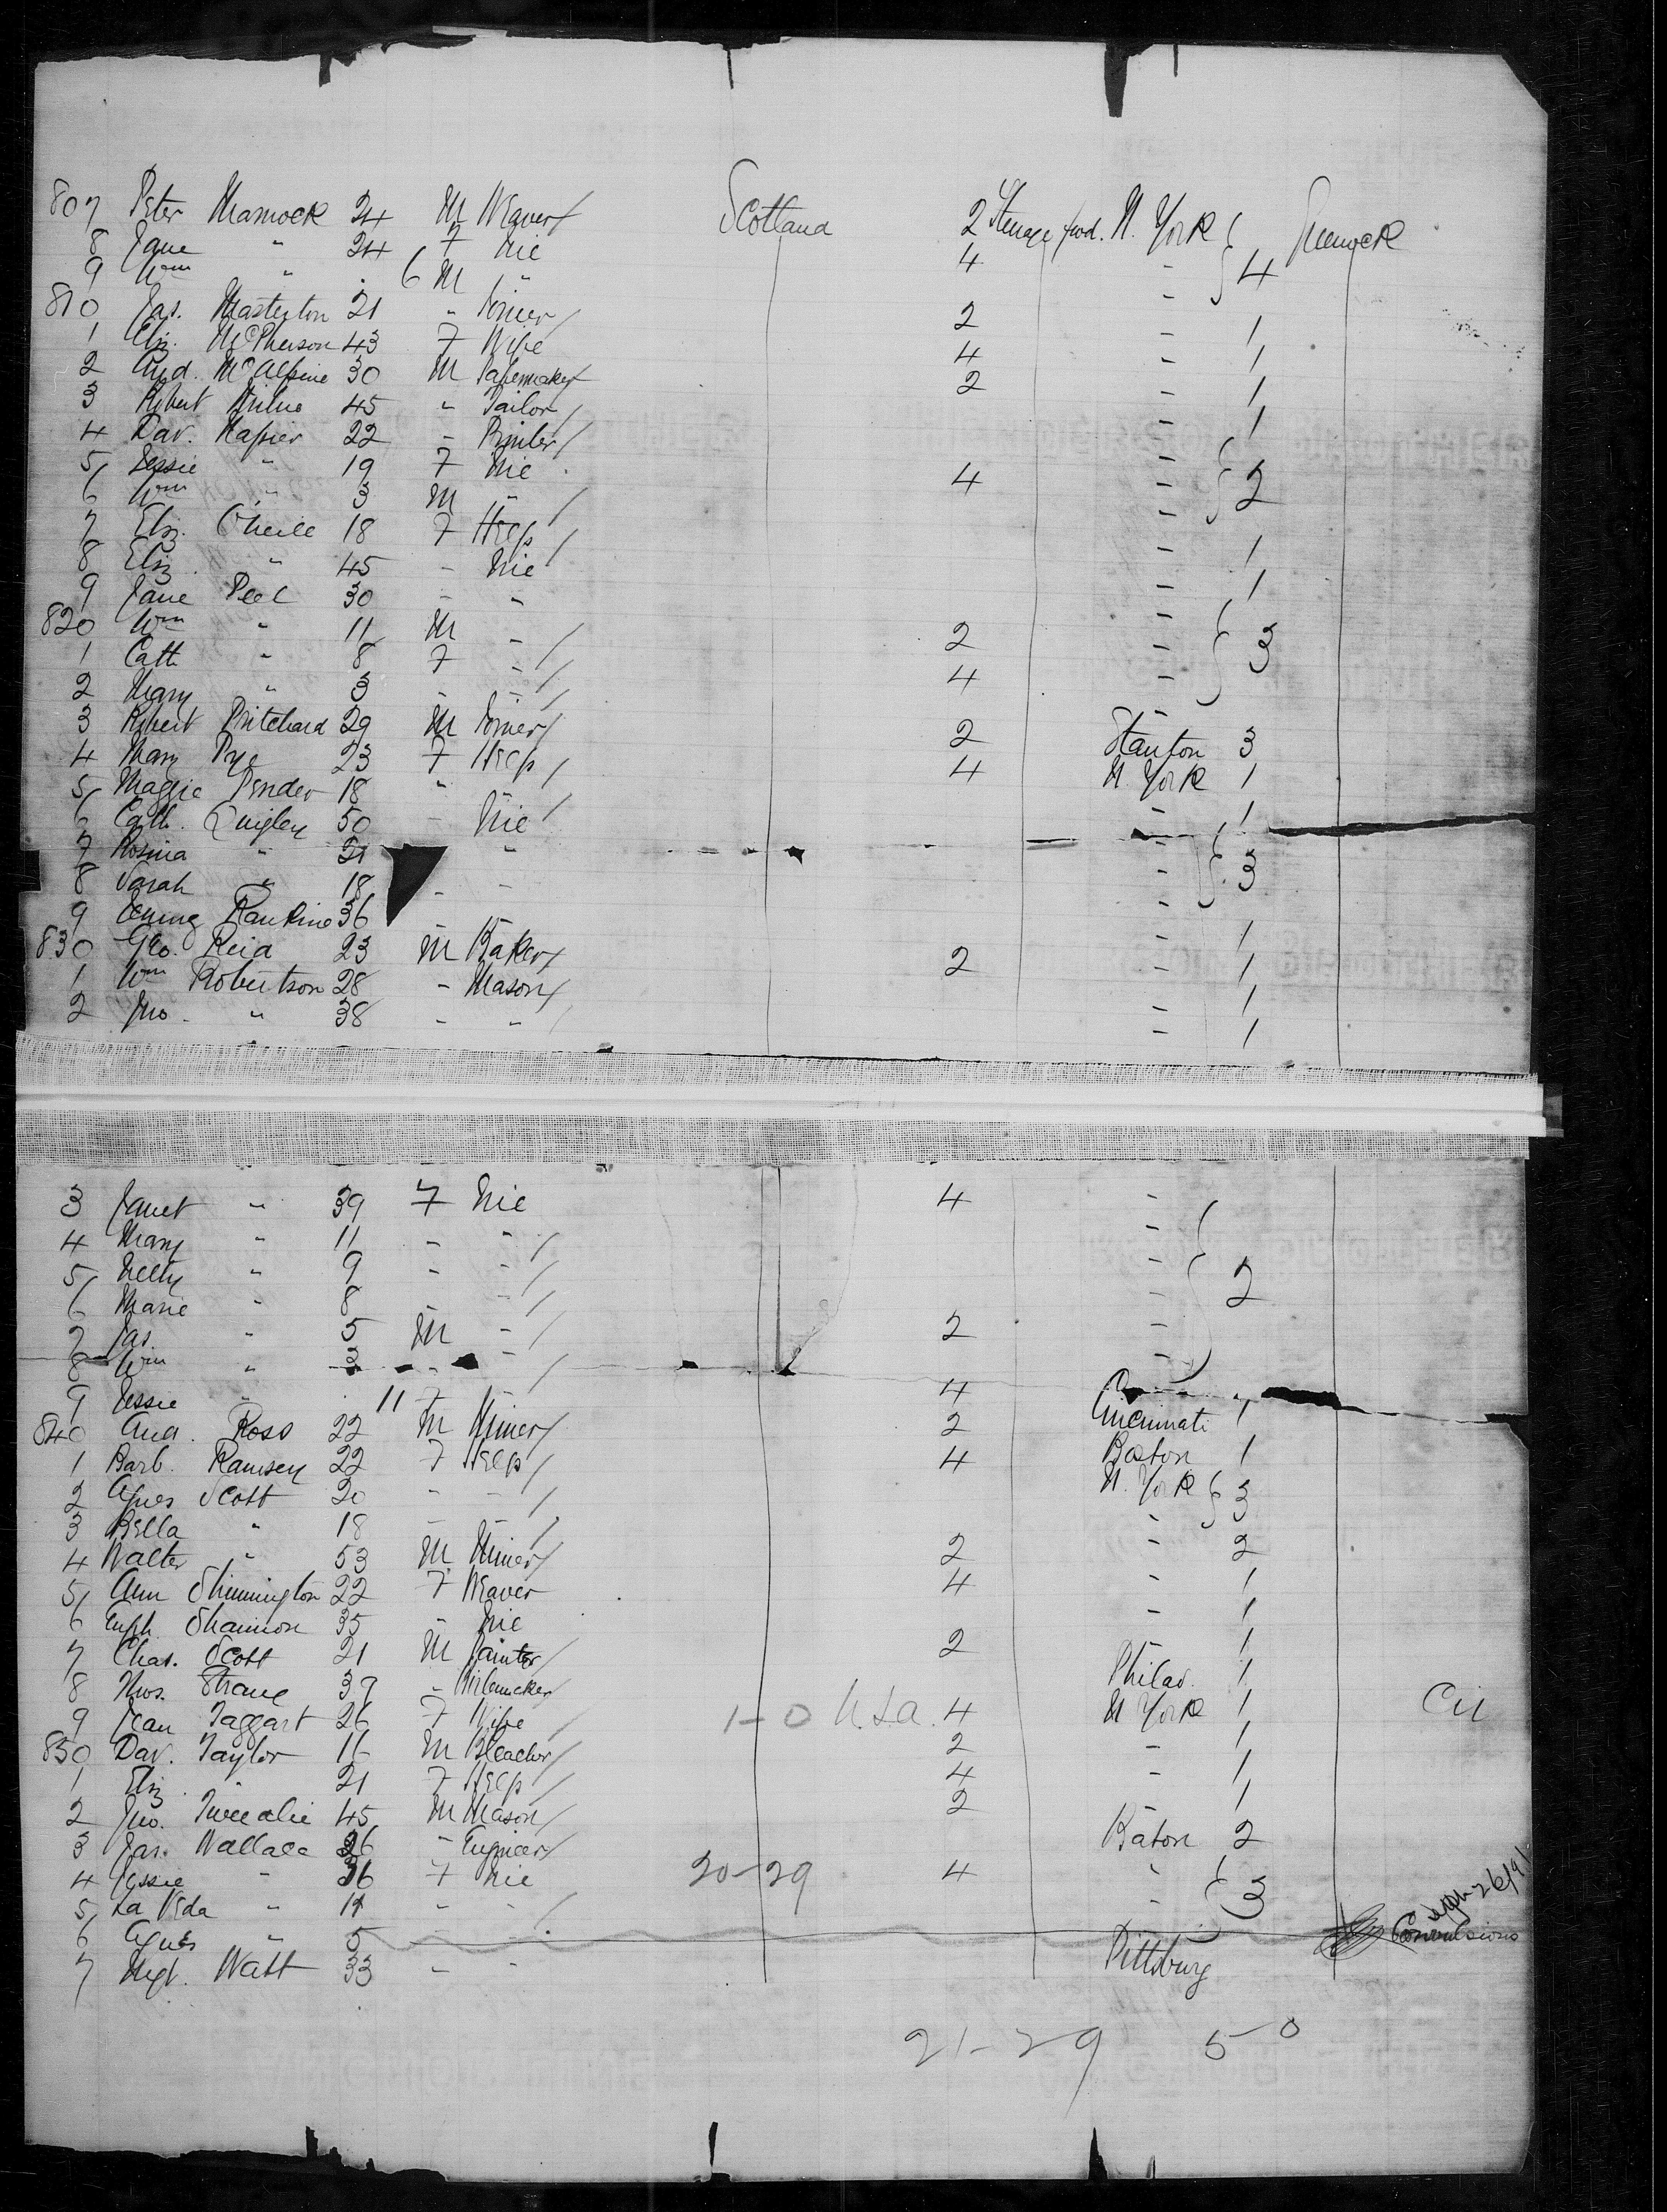 807 Peter Mamock 24 M Weaver / Scotland 2 Steerage fwd. N. York Greenock
8 Jane " 24 F Nie 4 "
9 Wm " . 6 M " " 4
810 Jas. Masterton 21 " Joiner / 2 " 1
1 Eliz. McPherson 43 F Wife 4 " 1
2 And. McAlpine 30 M Papermaker 2 " 1
3 Robert Milne 45 " Tailor / " 1
4 Dav. Napier 22 " Printer / "
5 Jessie " 19 F Nie 4 " 2
6 Wm " 3 M " / "
7 Eliz. O'Neill 18 F Help / " 1
8 Eliz. " 45 " Nie " 1
9 Jane Peel 30 " " "
820 Wm " 11 M " / 2 " 3
1 Cath " 8 F " / 4 "
2 Mary " 3 " " / "
3 Robert Pritchard 29 M Joiner / 2 Stanton 3
4 Mary Pye 23 F Help / 4 N. York 1
5 Maggie Pender 18 " " / " 1
6 Cath. Quigley 50 " Nie "
7 Rosina " 21 " " 3
8 Sarah " 18 " " "
9 Rankine 36 " 1
830 Geo. Reid 23 M Baker / 2 " 1
1 Wm Robertson 28 " Mason / " 1
2 Jno. " 38 " " / " 1
3 Janet " 39 F Nie 4 "
4 Mary " 11 " " / "
5 Netty " 9 " " / " 2
6 Marie " 8 " " / "
7 Jas. " 5 M " / 2 "
8 Wm " 3 " " / "
9 Jessie " . 11 F " 4 "
840 And. Ross 22 M Miner / 2 Cincinnati 1
1 Barb. Ramsey 22 F Help / 4 Boston 1
2 Agnes Scott 20 " " / N. York 3
3 Bella " 18 " " / "
4 Walter " 53 M Miner / 2 " 2
5 Ann Shinnington 22 F Weaver 4 " 1
6 Euph. Shannon 35 " Nie " 1
7 Chas. Scott 21 M Painter / 2 " 1
8 Thos. Strane 39 " Philad. 1
9 Jean Taggart 26 F Wife / 1-0 U.S.a. 4 N York 1 Cit
850 Dav. Taylor 16 M Bleacher / 2 " 1
1 Eliz. " 21 F Help / 4 " 1
2 Jno. Tweedlie 45 M Mason / 2 " 1
3 Jas. Wallace 36 " Engineer / Baton 2
4 Jessie " 36 F Nie 20-29 4 "
5 La Veda " 11 " " / " 3
6 Agnes " 5 " " / 26/91 Convulsions
7 Mgt. Watt 33 " " Pittsburg
21-29 5-0